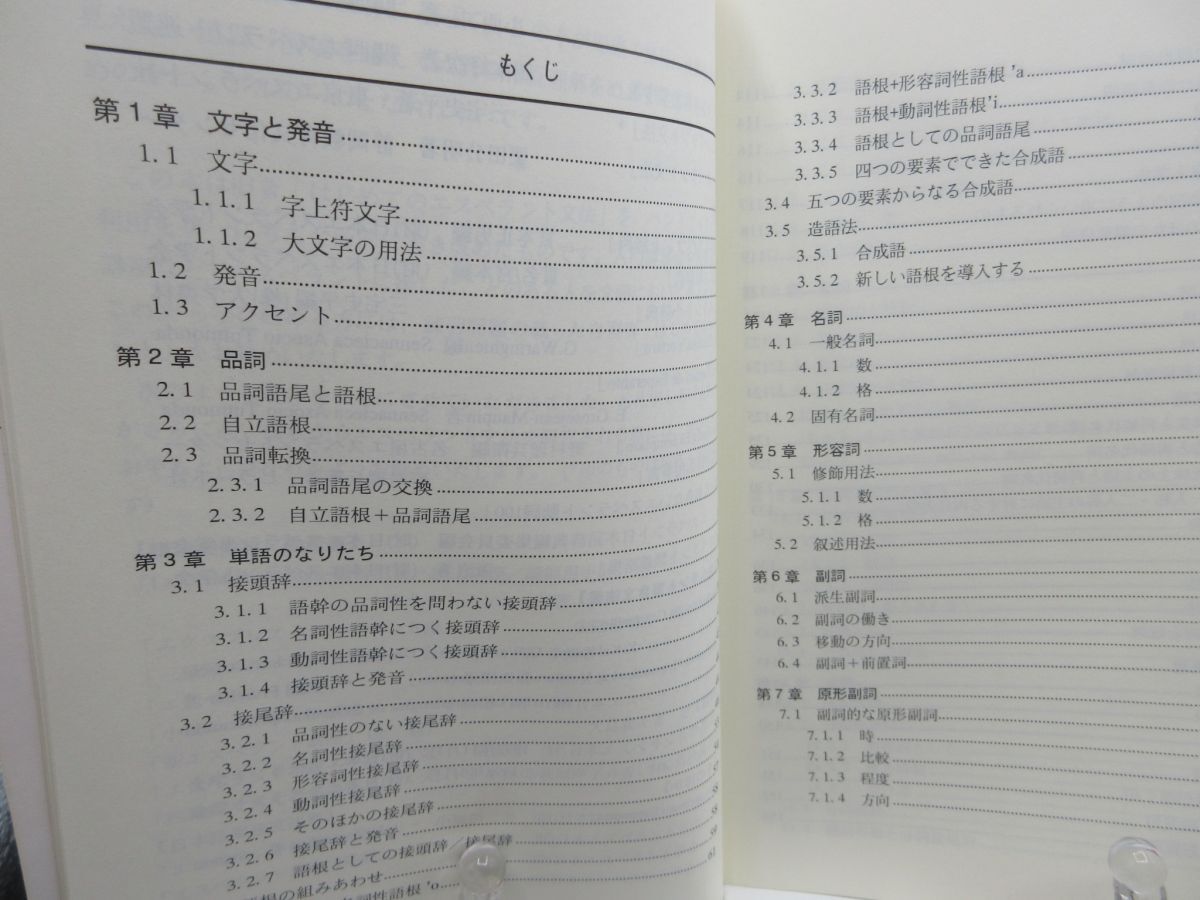 もくじ
第1章 文字と発音
1.1 文字
1.1.1 字上符文字
1.1.2 大文字の用法
1.2 発音
1.3 アクセント
第2章 品詞
2.1 品詞語尾と語根
2.2 自立語根
2.3 品詞転換
2.3.1 品詞語尾の交換
2.3.2 自立語根＋品詞語尾
第3章 単語のなりたち
3.1 接頭辞
3.1.1 語幹の品詞性を問わない接頭辞
3.1.2 名詞性語幹につく接頭辞
3.1.3 動詞性語幹につく接頭辞
3.1.4 接頭辞と発音
3.2 接尾辞
3.2.1 品詞性のない接尾辞
3.2.2 名詞性接尾辞
3.2.3 形容詞性接尾辞
3.2.4 動詞性接尾辞
3.2.5 そのほかの接尾辞
3.2.6 接尾辞と発音
3.2.7 語根としての接頭辞／接尾辞
根の組みあわせ
詞性語根 'o
3.3.2 語根+形容詞性語根 'a
3.3.3 語根+動詞性語根'i
3.3.4 語根としての品詞語尾
3.3.5 四つの要素でできた合成語
3.4 五つの要素からなる合成語
3.5 造語法
3.5.1 合成語
3.5.2 新しい語根を導入する
第4章 名詞
4.1 一般名詞
4.1.1 数
4.1.2 格
4.2 固有名詞
第5章 形容詞
5.1 修飾用法
5.1.1 数
5.1.2 格
5.2 叙述用法
第6章 副詞
6.1 派生副詞
6.2 副詞の働き
6.3 移動の方向
6.4 副詞＋前置詞
第7章 原形副詞
7.1 副詞的な原形副詞
7.1.1 時
7.1.2 比較
7.1.3 程度
7.1.4 方向